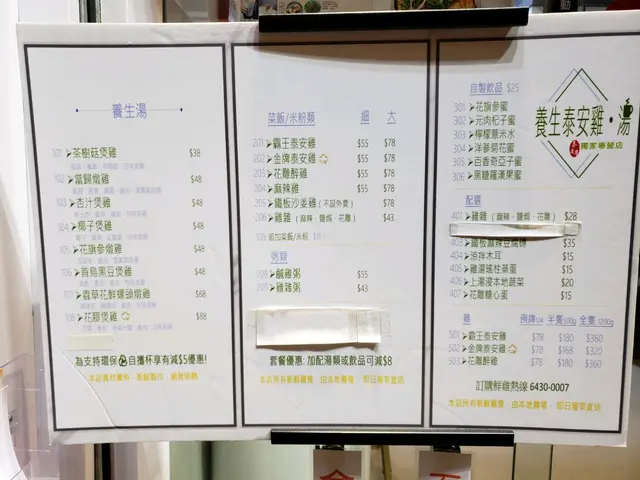 養生湯
101 ➤茶樹菇煲雞 $38
102 ➤當歸燉雞 $48
103 ➤杏汁煲雞 $48
104 ➤椰子煲雞 $48
105 ➤花旗參燉雞 $48
106 ➤首烏黑豆煲雞 $48
107 ➤蟲草花鮮螺頭燉雞 $68
108 ➤花膠煲雞 $88
為支持環保 自攜杯享有減$5優惠!
菜飯/米粉類 細 大
201 ➤霸王泰安雞 $55 $78
202 ➤金牌泰安雞 $55 $78
203 ➤花雕醉雞 $55 $78
204 ➤麻辣雞 $55 $78
205 ➤鐵板沙姜雞(不設外賣) $78
206 ➤雞雜(麻辣、鹽焗、花雕) $43
追加菜飯/米粉
粥類
208 ➤鹹雞粥 $55
209 ➤雞雜粥 $43
套餐優惠: 加配湯類或飲品可減$8
本店所有新鮮雞隻 由本地農場、即日屠宰直送
自製飲品 $25
301 ➤花旗參蜜
302 ➤元肉杞子蜜
303 ➤檸檬薏米水
304 ➤洋參菊花蜜
305 ➤百香奇亞子蜜
306 ➤黑糖羅漢果蜜
養生泰安雞·湯
獨家專營店
配選
401 ➤雞雜(麻辣、鹽焗、花雕) $28
403 ➤鐵板麻辣豆腐 $35
404 ➤涼拌木耳 $15
405 ➤雞湯瑤柱蒸蛋 $15
406 ➤上湯浸本地蔬菜 $20
407 ➤花雕糖心蛋 $15
雞 例牌1/4 半隻500g 全隻1200g
501 ➤霸王泰安雞 $78 $180 $360
502 ➤金牌泰安雞 $78 $168 $320
503 ➤花雕醉雞 $78 $180 $360
訂購鮮雞熱線 6430-0007
本店所有新鮮雞隻 由本地農場、即日屠宰直送